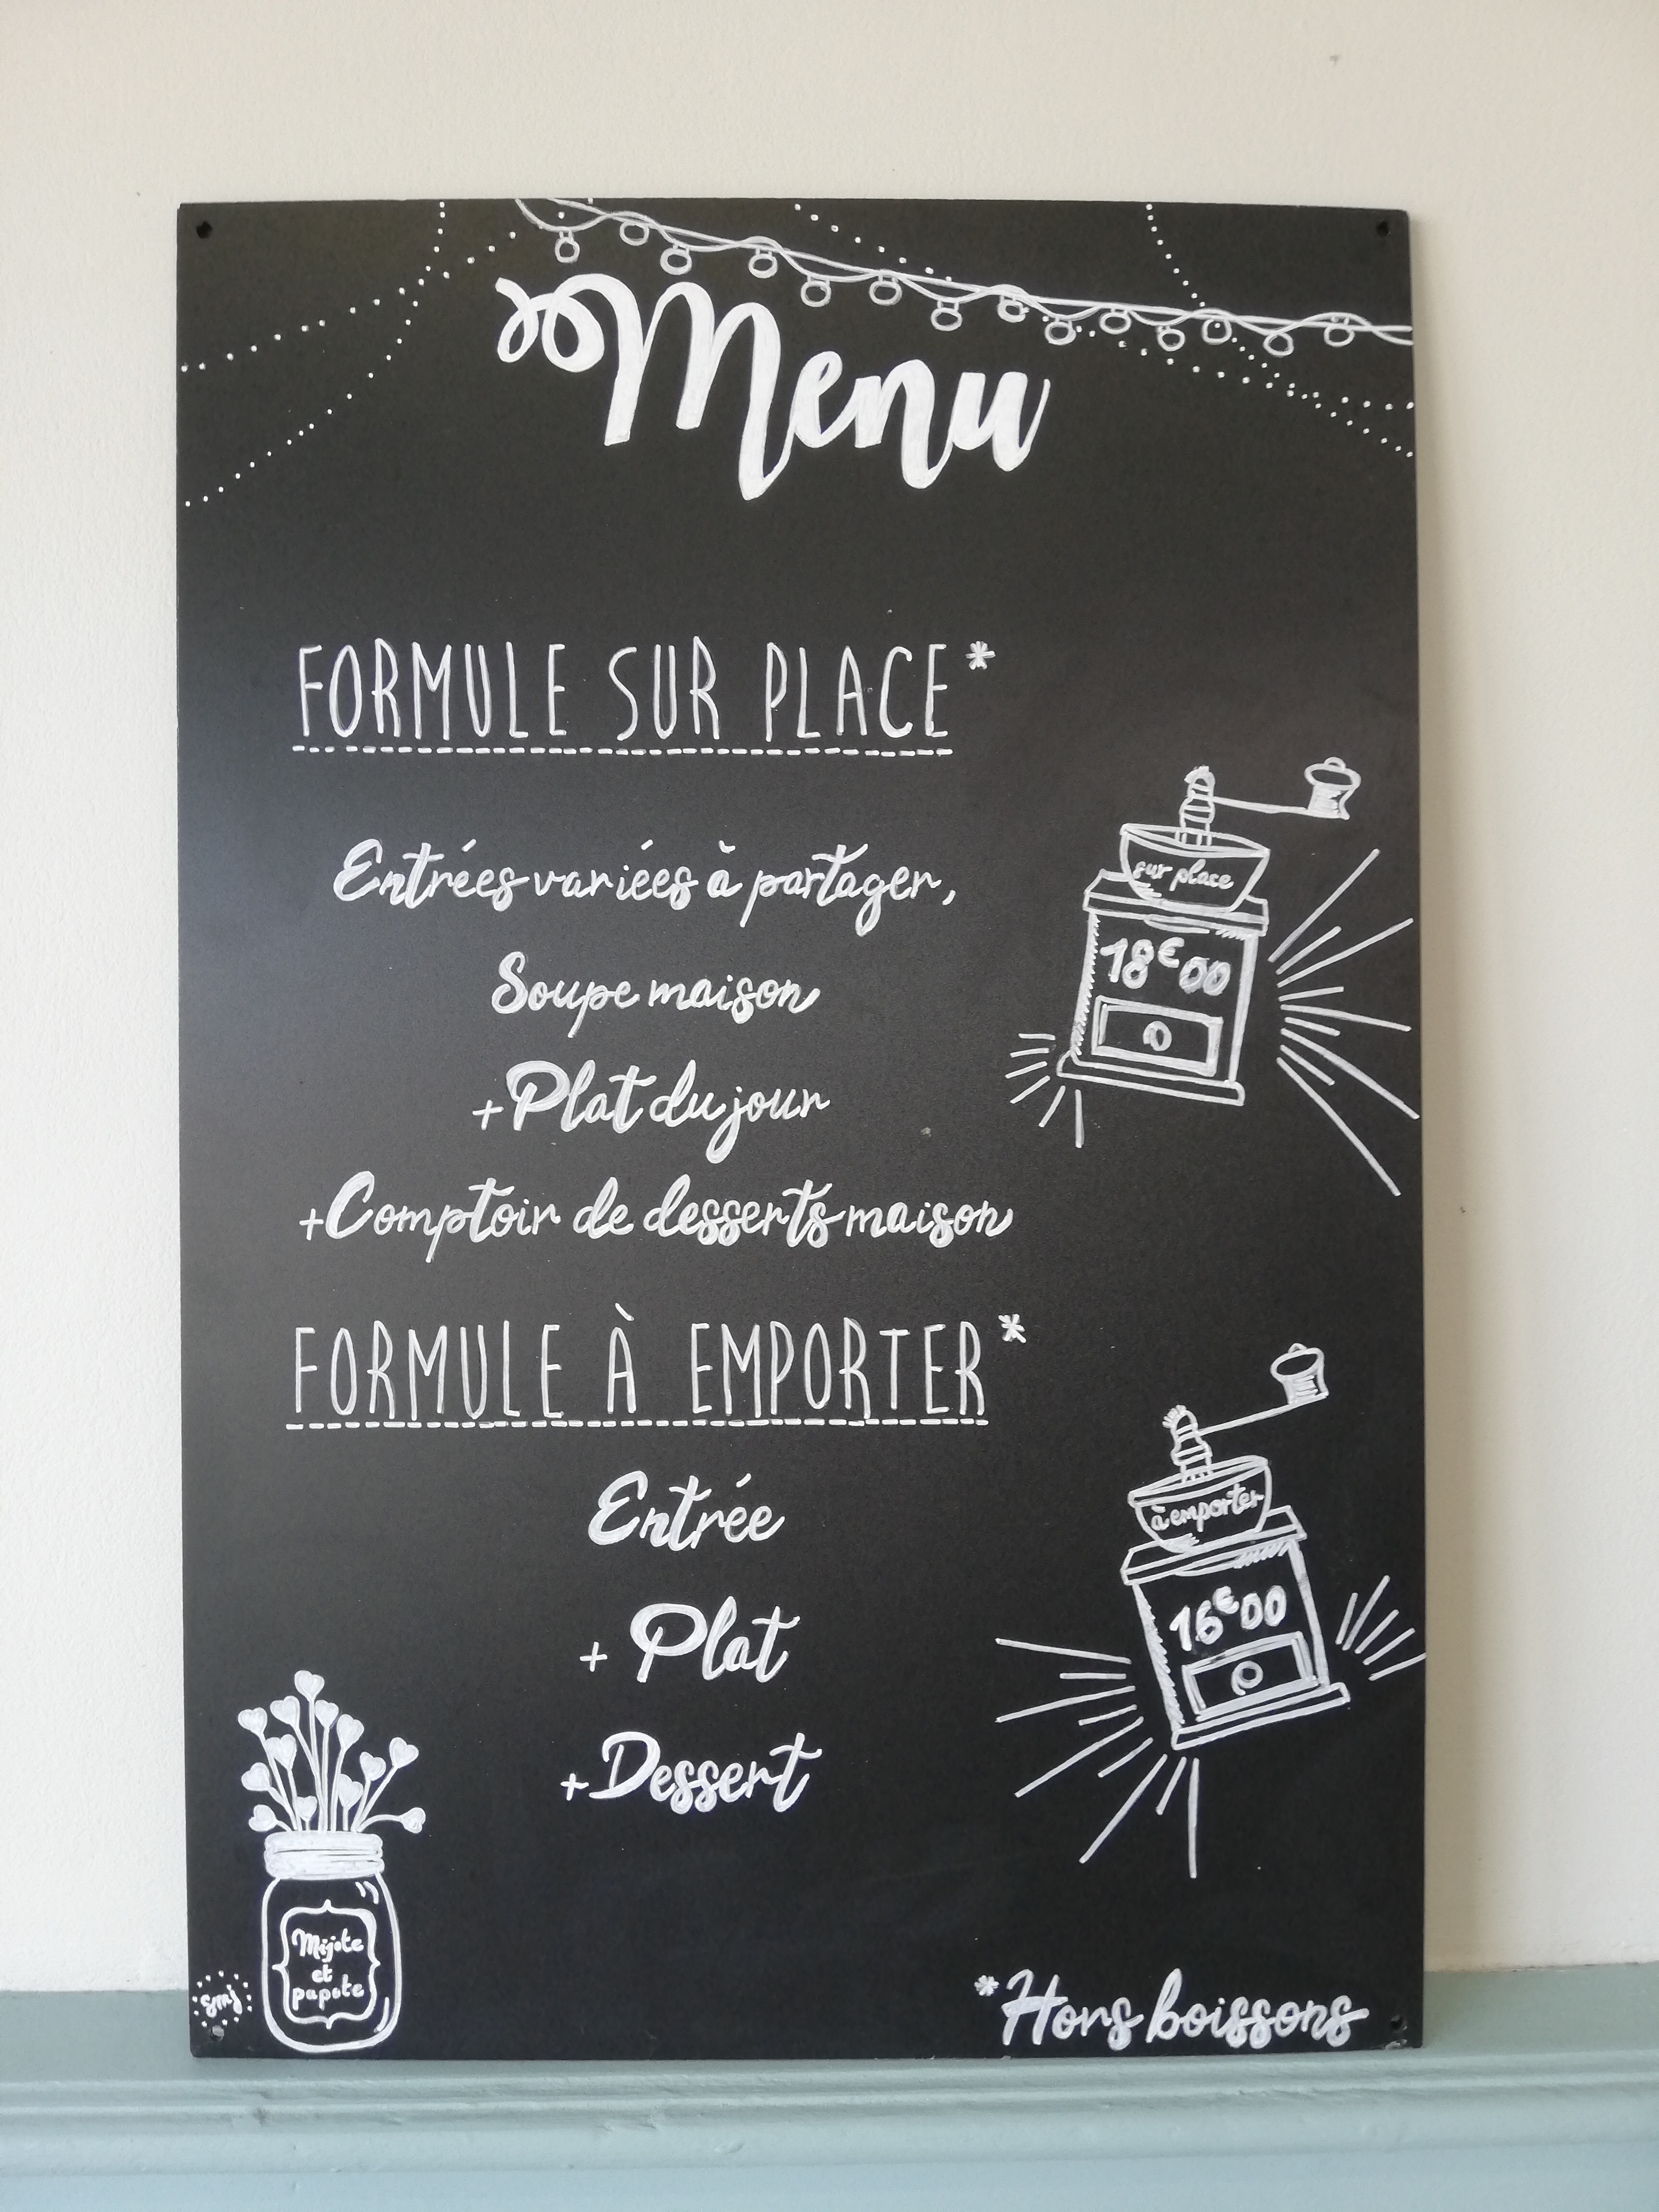 Menu
FORMULE SUR PLACE*
Entrées variées à partager,
Soupe maison
+ Plat du jour
+ Comptoir de desserts maison
sur place
18€00
FORMULE À EMPORTER*
Entrée
+ Plat
+ Dessert
à emporter
16€00
Mijote
et
papote
smj
*Hors boissons